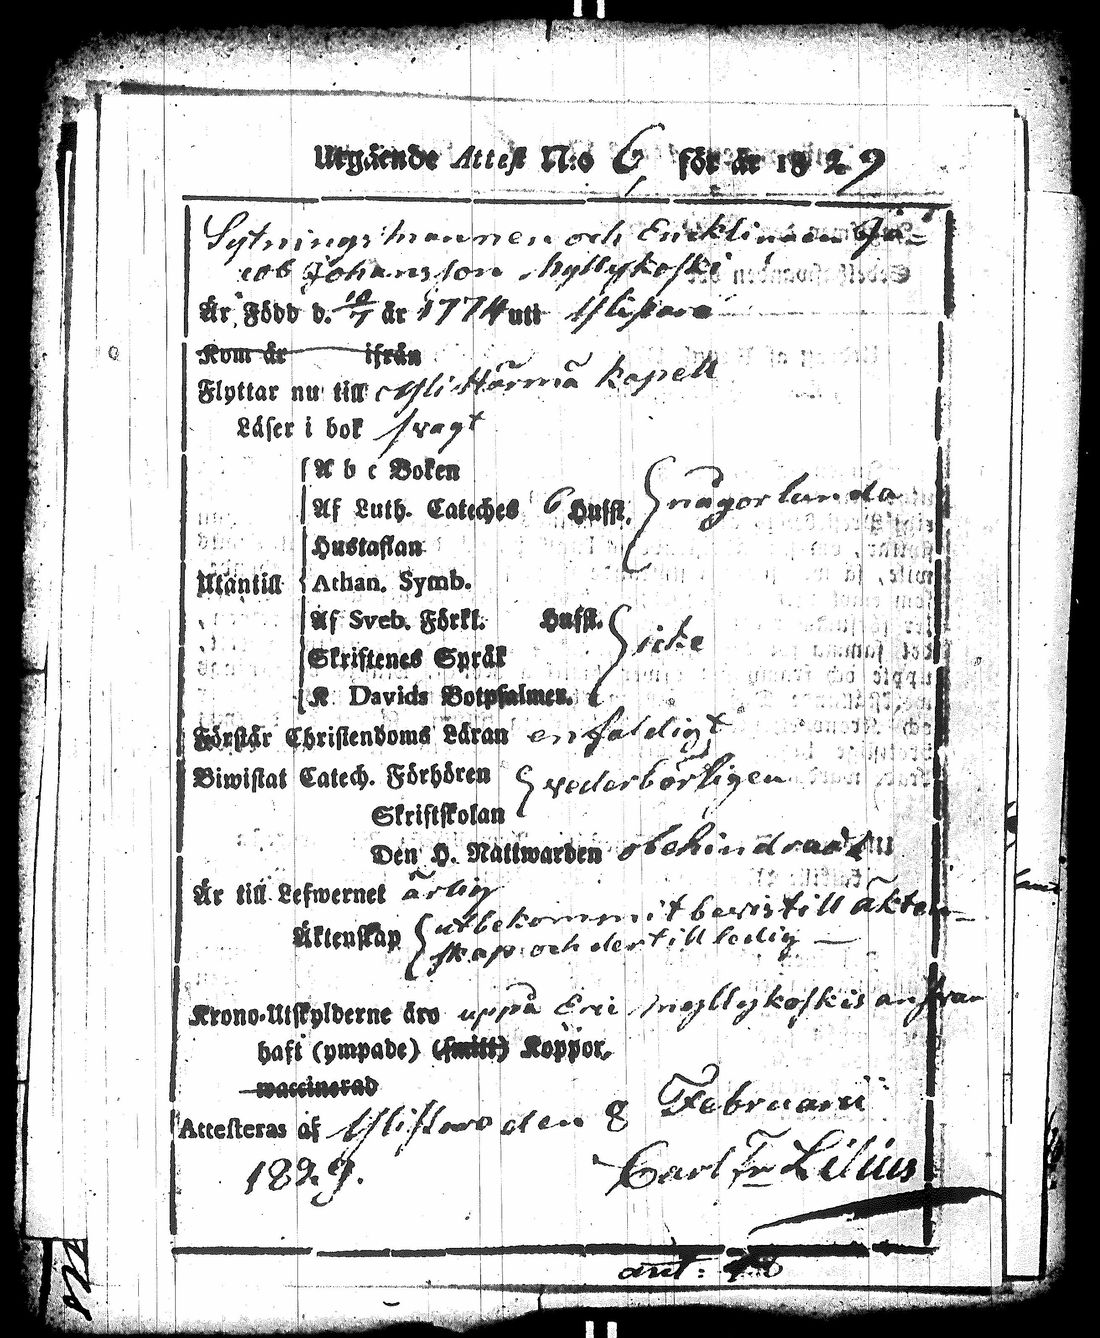 Utgående Attest N:o 6 för år 1829
Sytningsmannen och Encklingen Ja-
cob Johansson Myllykoski
Är Född d. 10/7 år 1774 uti Ylistaro
Kom år ifrån
Flyttar nu till Ylihärmä kapell
Läser i bok svagt
A b c Boken
Af Luth. Cateches 6 Hufst. någorlunda
Hustaflan
Utantill Athan. Symb.
Af Sveb. Förkl. Hufst. icke
Skriftenes Språk
K. Davids Botpsalmer.
Förstår Christendoms Läran enfaldigt
Biwistat Catech. Förhören vederbörligen
Skriftskolan
Den H. Nattwarden obehindrad
Är till Lefwernet ärlig
Äktenskap utbekommit bevis till äkten-
skap och dertill ledig —
Krono-Utskylderne äro uppå Eric Myllykoskis ansvar
haft (ympade) (smitt) Koppor.
waccinerad
Attesteras af Ylistaro den 8 Februarii
1829. Carl Fr Lilius
ant: